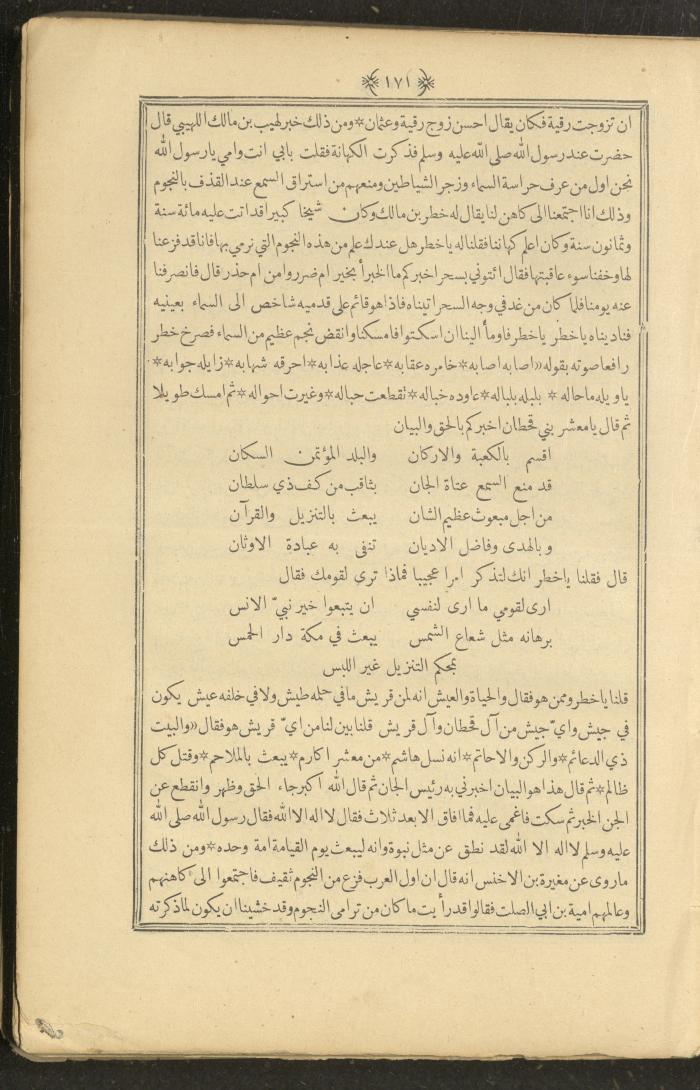 ﴿١٧١﴾
ان تزوجت رقية فكان يقال احسن زوج رقية وعثمان * ومن ذلك خبر لهيب بن مالك اللهيبي قال
حضرت عند رسول الله صلى الله عليه وسلم فذكرت الكهانة فقلت بابي انت وامي يارسول الله
نحن اول من عرف حراسة السماء وزجر الشياطين ومنعهم من استراق السمع عند القذف بالنجوم
وذلك انا اجتمعنا الى كاهن لنا يقال له خطر بن مالك وكان شيخا كبيرا قد اتت عليه مائة سنة
وثمانون سنة وكان اعلم كهاننا فقلنا له ياخطر هل عندك علم من هذه النجوم التي نرمي بها فانا قد فزعنا
لها وخفنا سوء عاقبتها فقال ائتوني بسحر اخبركم ما الخبر أ بخير ام ضرر و امن ام حذر قال فانصرفنا
عنه يومنا فلما كان من غد في وجه السحر اتيناه فاذا هو قائم على قدميه شاخص الى السماء بعينيه
فناديناه ياخطر ياخطر فاومأ الينا ان اسكتوا فامسكنا وانقض نجم عظيم من السماء فصرخ خطر
رافعا صوته بقوله «اصابه اصابه * خامره عقابه * عاجله عذابه * احرقه شهابه * زايله جوابه *
ياويله ماحاله * بلبله بلباله * عاوده خباله * تقطعت حباله * وغيرت احواله * ثم امسك طويلا
ثم قال يامعشر بني قحطان اخبركم بالحق والبيان
اقسم بالكعبة والاركان والبلد المؤتمن السكان
قد منع السمع عتاة الجان بثاقب من كف ذي سلطان
من اجل مبعوث عظيم الشان يبعث بالتنزيل والقرآن
وبالهدى وفاضل الاديان تنفى به عبادة الاوثان
قال فقلنا ياخطر انك لتذكر امرا عجيبا فماذا ترى لقومك فقال
ارى لقومي ما ارى لنفسي ان يتبعوا خير نبيّ الانس
برهانه مثل شعاع الشمس يبعث في مكة دار الحمس
بمحكم التنزيل غير اللبس
قلنا ياخطر وممن هو فقال والحياة والعيش انه لمن قريش ما في حمله طيش ولا في خلفه عيش يكون
في جيش واي جيش من آل قحطان وآل قريش قلنا بين لنا من ايّ قريش هو فقال «والبيت
ذي الدعائم * والركن والاحاتم * انه نسل هاشم * من معشر اكارم * يبعث بالملاحم * وقتل كل
ظالم * ثم قال هذا هو البيان اخبرني به رئيس الجان ثم قال الله اكبر جاء الحق وظهر وانقطع عن
الجن الخبر ثم سكت فاغمى عليه فما افاق الا بعد ثلاث فقال لا اله الا الله فقال رسول الله صلى الله
عليه وسلم لا اله الا الله لقد نطق عن مثل نبوة وانه ليبعث يوم القيامة امة وحده * ومن ذلك
ماروى عن مغيرة بن الاخنس انه قال ان اول العرب فزع من النجوم ثقيف فاجتمعوا الى كاهنهم
وعالمهم امية بن ابي الصلت فقالوا قد رأيت ما كان من ترامى النجوم وقد خشينا ان يكون لما ذكرته